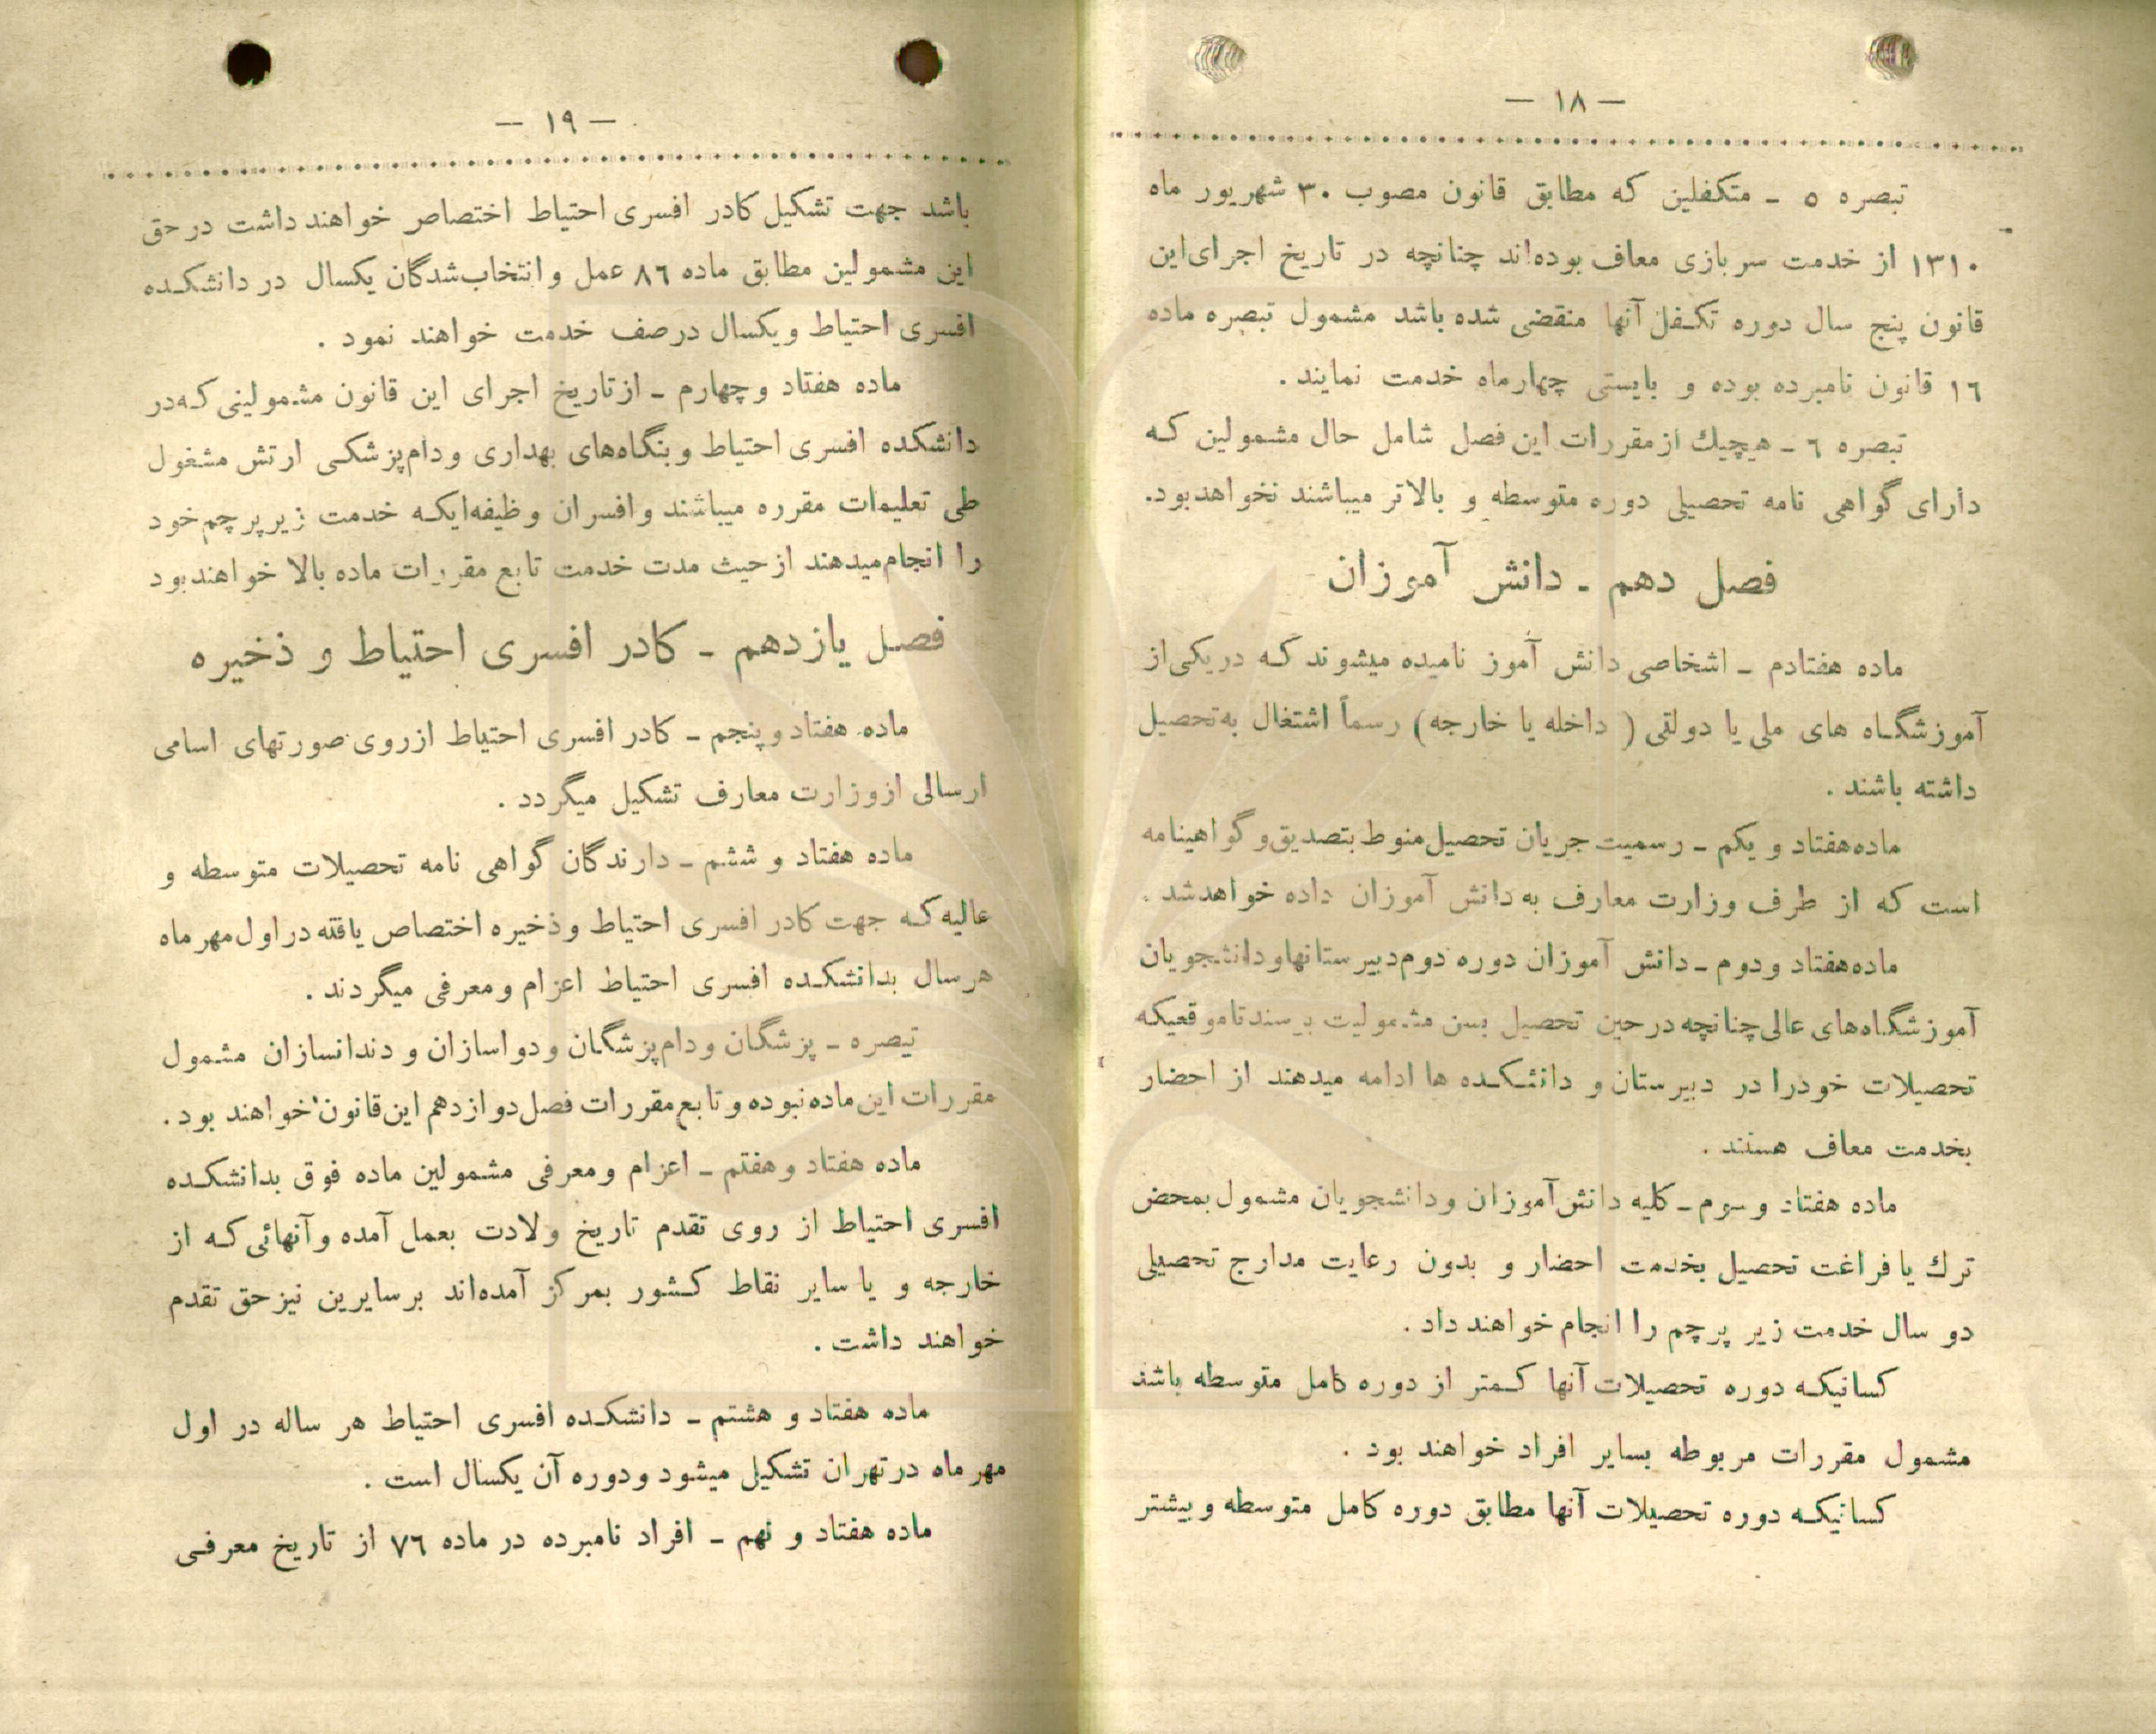 — ١٨ —
تبصره ٥ ـ متكفلين كه مطابق قانون مصوب ٣٠ شهريور ماه
١٣١٠ از خدمت سربازی معاف بوده‌اند چنانچه در تاريخ اجرای اين
قانون پنج سال دوره تكفل آنها منقضی شده باشد مشمول تبصره ماده
١٦ قانون نامبرده بوده و بايستی چهارماه خدمت نمايند .
تبصره ٦ ـ هيچيك از مقررات اين فصل شامل حال مشمولين كه
دارای گواهی نامه تحصيلی دوره متوسطه و بالاتر ميباشند نخواهد بود.
فصل دهم ـ دانش آموزان
ماده هفتادم ـ اشخاصی دانش آموز ناميده ميشوند كه در يكی از
آموزشگاه های ملی يا دولتی ( داخله يا خارجه) رسماً اشتغال به تحصيل
داشته باشند .
ماده هفتاد و يكم ـ رسميت جريان تحصيل منوط بتصديق و گواهينامه
است كه از طرف وزارت معارف به دانش آموزان داده خواهد شد .
ماده هفتاد ودوم ـ دانش آموزان دوره دوم دبيرستانها و دانشجويان
آموزشگاه‌های عالی چنانچه در حين تحصيل بسن مشموليت برسند تا موقعيكه
تحصيلات خودرا در دبيرستان و دانشكده ها ادامه ميدهند از احضار
بخدمت معاف هستند .
ماده هفتاد و سوم ـ كليه دانش‌آموزان ودانشجويان مشمول بمحض
ترك يا فراغت تحصيل بخدمت احضار و بدون رعايت مدارج تحصيلی
دو سال خدمت زير پرچم را انجام خواهند داد .
كسانيكه دوره تحصيلات آنها كمتر از دوره كامل متوسطه باشد
مشمول مقررات مربوطه بساير افراد خواهند بود .
كسانيكه دوره تحصيلات آنها مطابق دوره كامل متوسطه و بيشتر
— ١٩ —
باشد جهت تشكيل كادر افسری احتياط اختصاص خواهند داشت در حق
اين مشمولين مطابق ماده ٨٦ عمل و انتخاب‌شدگان يكسال در دانشكده
افسری احتياط و يكسال درصف خدمت خواهند نمود .
ماده هفتاد وچهارم ـ از تاريخ اجرای اين قانون مشمولينی كه در
دانشكده افسری احتياط و بنگاه‌های بهداری ودام‌پزشكی ارتش مشغول
طی تعليمات مقرره ميباشند و افسران وظيفه‌ايكه خدمت زير پرچم خود
را انجام ميدهند از حيث مدت خدمت تابع مقررات ماده بالا خواهند بود
فصل يازدهم ـ كادر افسری احتياط و ذخيره
ماده هفتاد و پنجم ـ كادر افسری احتياط از روی صورتهای اسامی
ارسالی از وزارت معارف تشكيل ميگردد .
ماده هفتاد و ششم ـ دارندگان گواهی نامه تحصيلات متوسطه و
عاليه كه جهت كادر افسری احتياط و ذخيره اختصاص يافته در اول مهر ماه
هر سال بدانشكده افسری احتياط اعزام و معرفی ميگردند .
تبصره ـ پزشگان و دام‌پزشگان و دواسازان و دندانسازان مشمول
مقررات اين ماده نبوده و تابع مقررات فصل دوازدهم اين قانون خواهند بود .
ماده هفتاد و هفتم ـ اعزام و معرفی مشمولين ماده فوق بدانشكده
افسری احتياط از روی تقدم تاريخ ولادت بعمل آمده و آنهائی كه از
خارجه و يا ساير نقاط كشور بمركز آمده‌اند بر سايرين نيز حق تقدم
خواهند داشت .
ماده هفتاد و هشتم ـ دانشكده افسری احتياط هر ساله در اول
مهر ماه در تهران تشكيل ميشود و دوره آن يكسال است .
ماده هفتاد و نهم ـ افراد نامبرده در ماده ٧٦ از تاريخ معرفی